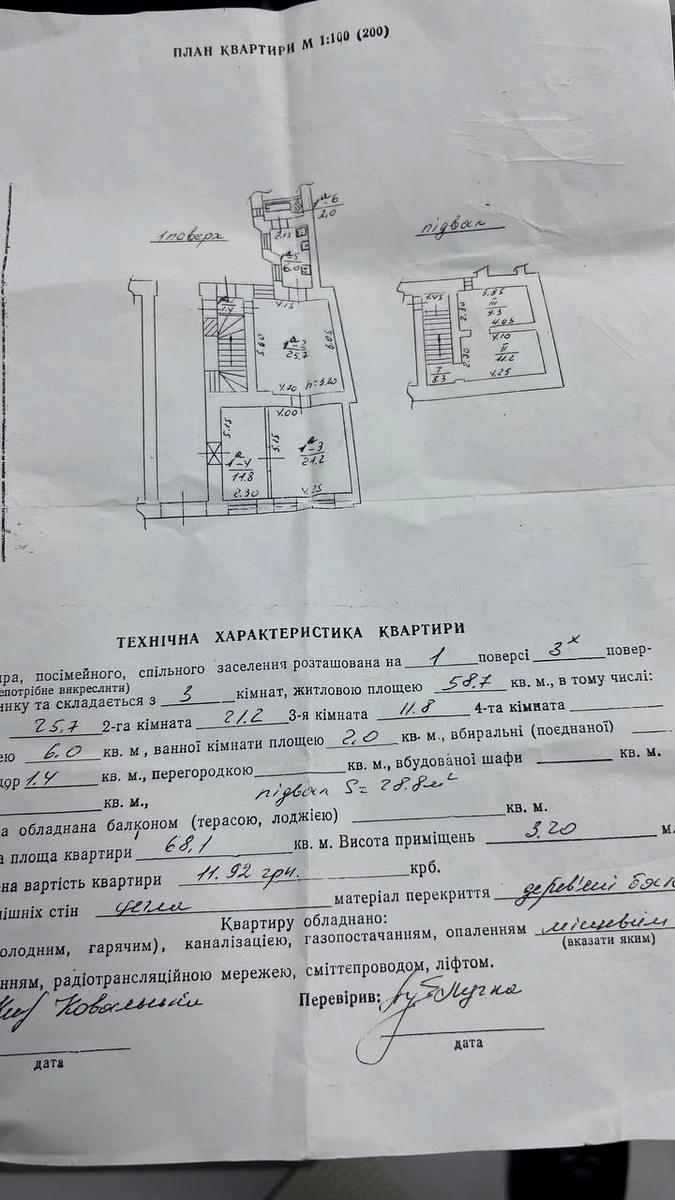 ПЛАН КВАРТИРИ М 1:100 (200)
1 поверх
підвал
1а-6
2,0
2.15
1а-5
6.0
1а-1
1.4
4.15
5.60
1а-2
25,7
6.05
4.70 h=3.20
4.00
5.15
5.15
1а-4
11.8
1а-3
21.2
2.30
4.25
1.45
3.85
2.30
III
9.3
4.03
4.10
2.70
II
11.2
I
8.3
4.25
ТЕХНІЧНА ХАРАКТЕРИСТИКА КВАРТИРИ
ира, посімейного, спільного заселення розташована на 1 поверсі 3х повер-
(непотрібне викреслити)
инку та складається з 3 кімнат, житловою площею 58,7 кв. м., в тому числі:
25,7 2-га кімната 21.2 3-я кімната 11.8 4-та кімната
ею 6.0 кв. м , ванної кімнати площею 2.0 кв. м., вбиральні (поєднаної)
дор 1.4 кв. м., перегородкою кв. м., вбудованої шафи кв. м.
кв. м., підвал S= 28.8м²
а обладнана балконом (терасою, лоджією) кв. м.
а площа квартири 68,1 кв. м. Висота приміщень 3.20 м.
на вартість квартири 11.92 грн. крб.
нішніх стін цегла матеріал перекриття дерев'яні
Квартиру обладнано:
олодним, гарячим), каналізацією, газопостачанням, опаленням місцевим
(вказати яким)
нням, радіотрансляційною мережею, сміттєпроводом, ліфтом.
Перевірив:
дата
дата